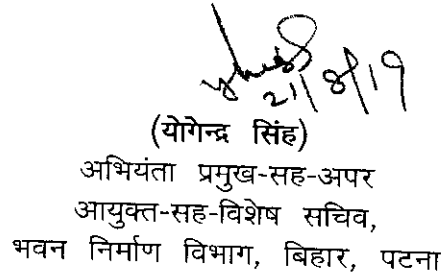 21/8/19
(योगेन्द्र सिंह)
अभियंता प्रमुख-सह-अपर
आयुक्त-सह-विशेष सचिव,
भवन निर्माण विभाग, बिहार, पटना